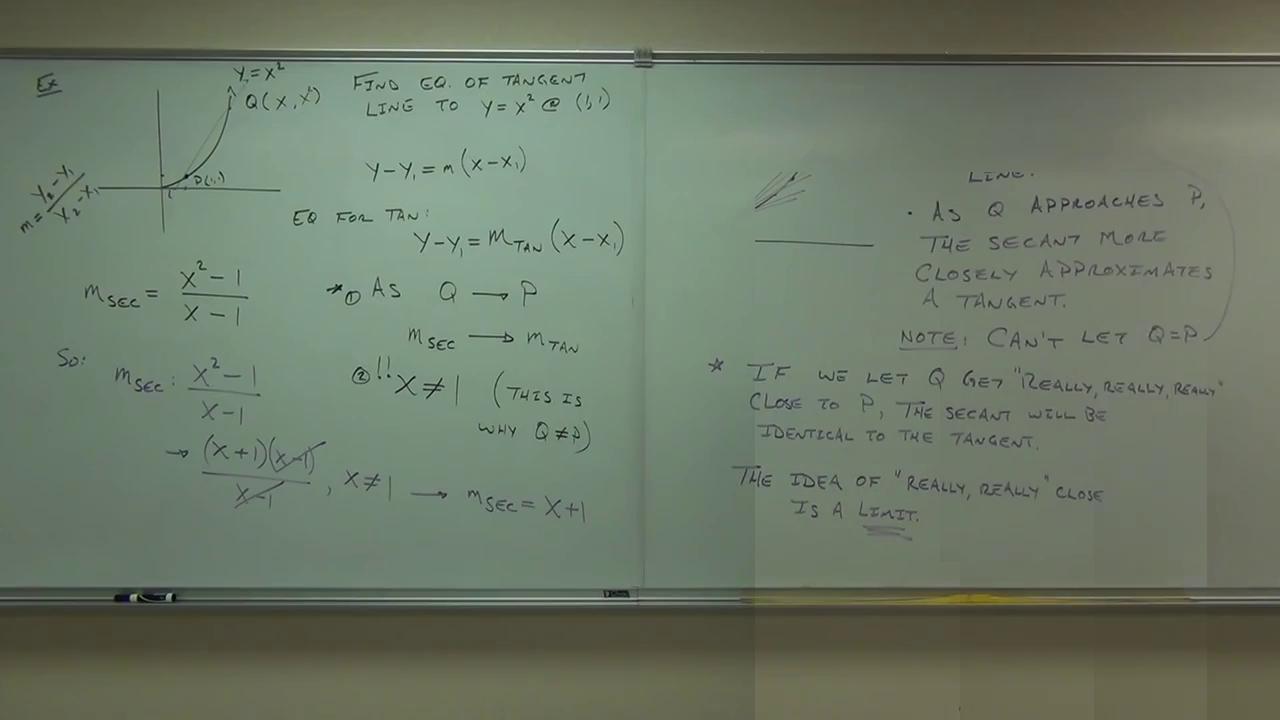 Ex
Y=X²
Q(X, X²)
P(1,1)
1
m = Y₂-Y₁ / X₂-X₁
FIND EQ. OF TANGENT
LINE TO Y=X² @ (1,1)
Y-Y₁ = m(X-X₁)
EQ FOR TAN:
Y-Y₁ = M_TAN (X-X₁)
m_SEC = X²-1 / X-1
* ① AS Q → P
m_SEC → m_TAN
So:
m_SEC: X²-1 / X-1
② !! X≠1 (THIS IS
WHY Q≠P)
→ (X+1)(X-1) / X-1 , X≠1 → m_SEC = X+1
LINE.
• AS Q APPROACHES P,
THE SECANT MORE
CLOSELY APPROXIMATES
A TANGENT.
NOTE: CAN'T LET Q=P
* IF WE LET Q GET "REALLY, REALLY, REALLY"
CLOSE TO P, THE SECANT WILL BE
IDENTICAL TO THE TANGENT.
THE IDEA OF "REALLY, REALLY" CLOSE
IS A LIMIT.